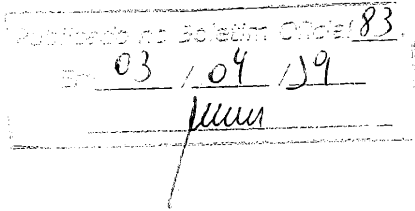 Publicado no Boletim Oficial 83.
Em 03 / 04 / 19